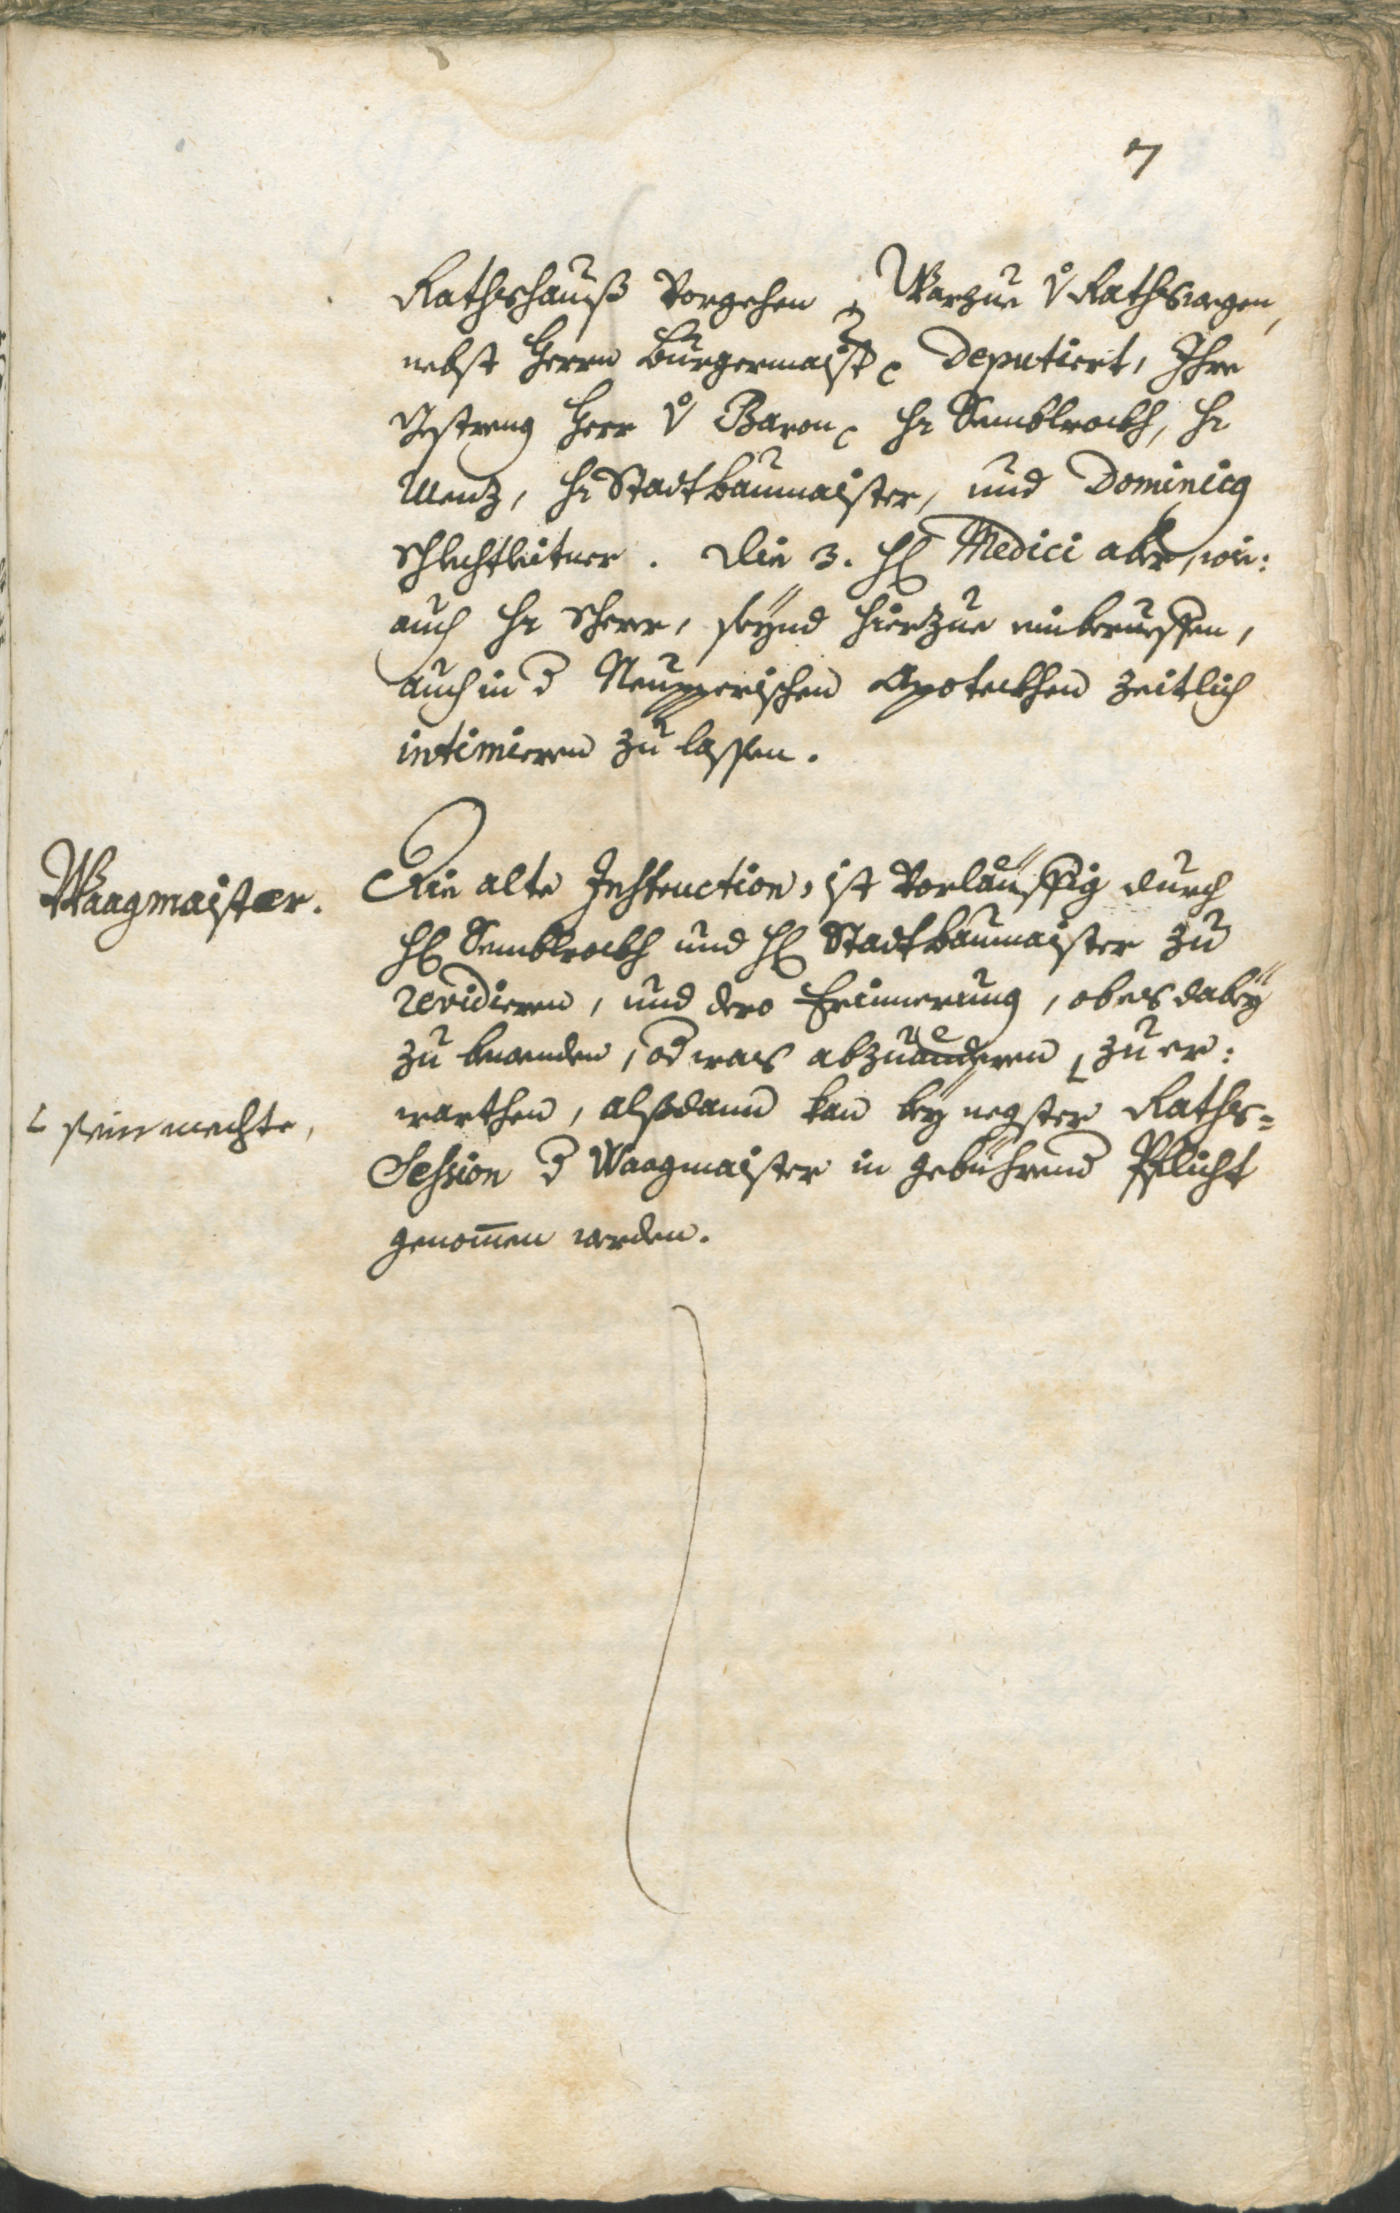 7
Rathshauß Vorgehen, Warzue v Rathswegen,
nebst Herrn Burgermaist. Deputiert, Ihre
Gstreng Herr v Baron. Hr Semblrockh, Hr
Menz, Hr Stadtbaumaister, und Dominicq
Schlechtleitner. Die 3. HH Medici aber, wie:
auch Hr Scherer, seÿnd hierzue einberueffen,
auch in d Neupperischen Apoteckhen zeitlich
intimieren zu lassen.
Waagmaister.
Die alte Instruction, ist Vorläuffig durch
HH Semblrockh und HH Stadtbaumaister zu
revidieren, und dero Erinnerung, ob es dabeÿ
zu bewenden, od was abzuänderen zu er:
sein mechte,
warthen, alßdann kan beÿ negster Raths=
Session d Waagmaister in gebührend Pflicht
genomen werden.